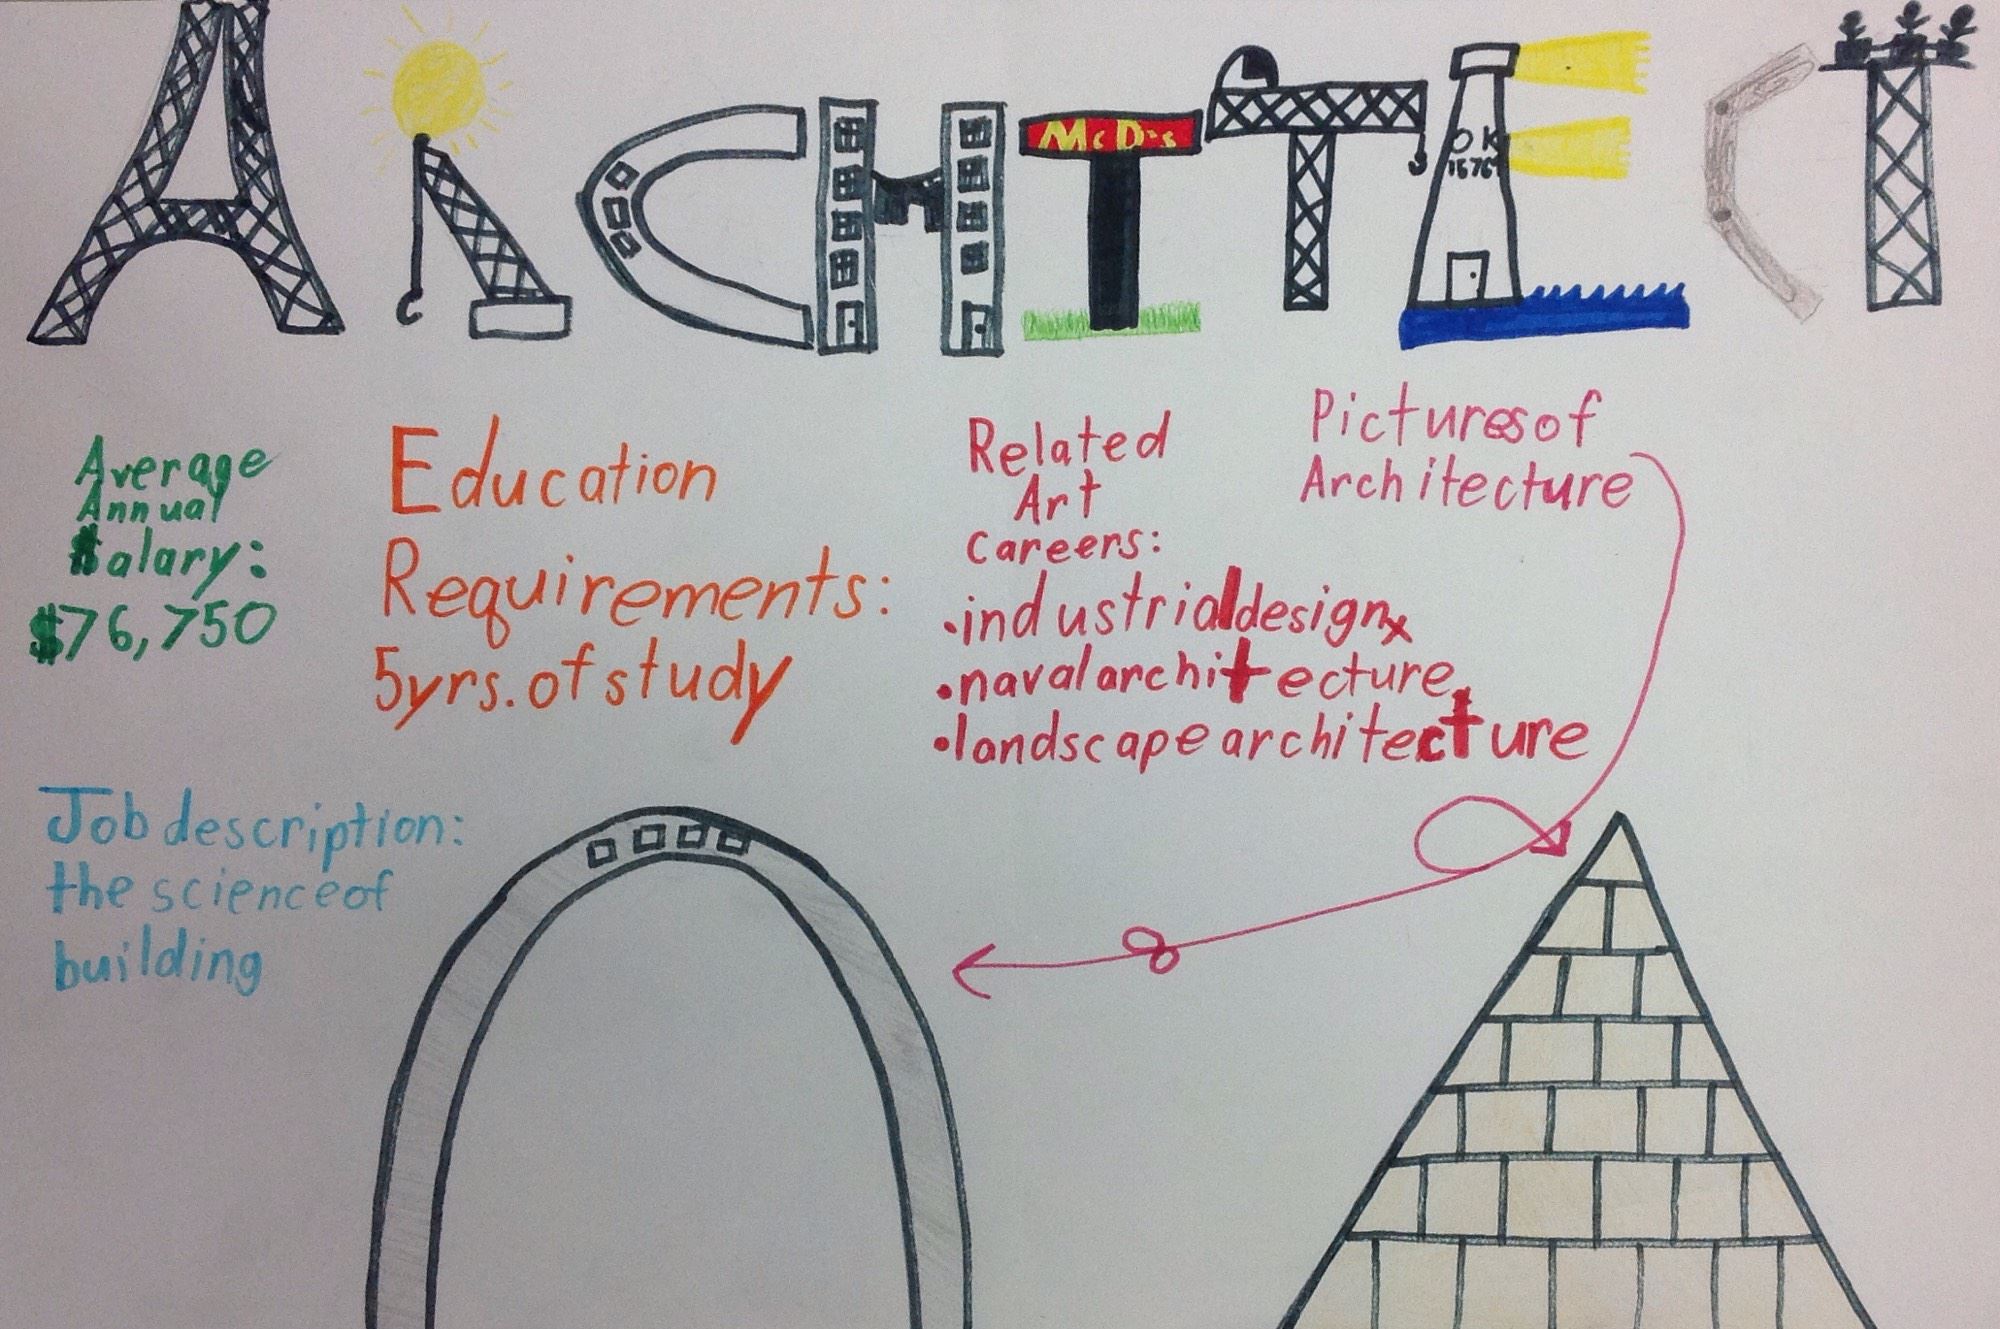 ARCHITECT
McD's
OK
Average
Annual
$alary:
$76,750
Education
Requirements:
5yrs. of study
Related
Art
Careers:
•industrial design
•naval architecture
•landscape architecture
Pictures of
Architecture
Job description:
the science of
building